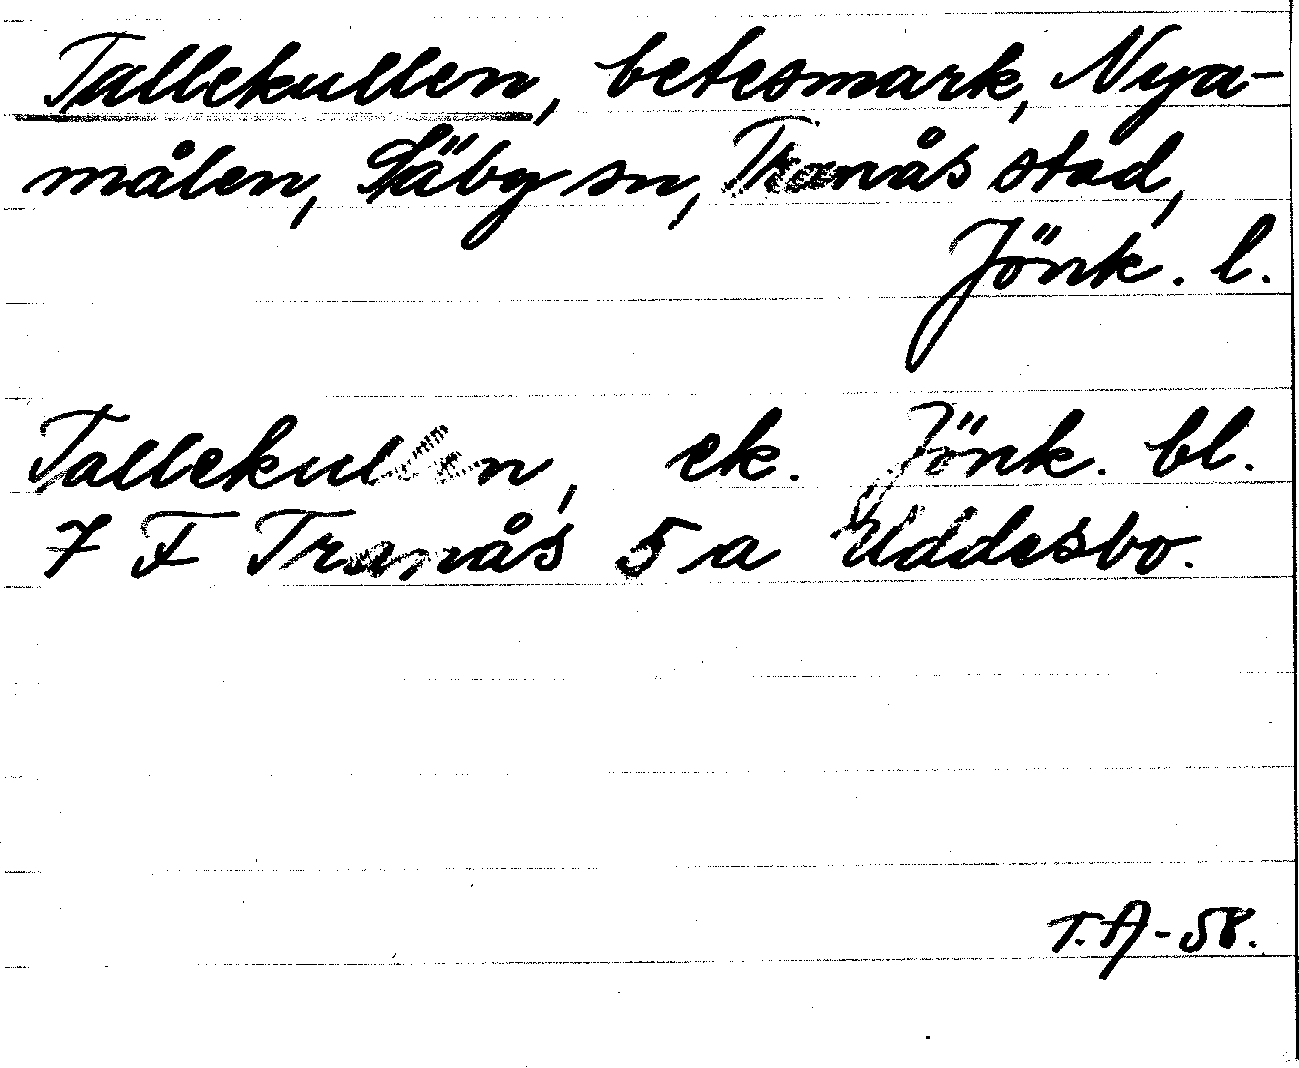 Tallekullen, betesmark, Nya-
målen, Säby sn, Tranås stad,
Jönk. l.
Tallekullen, ek. Jönk. bl.
7 F Tranås 5 a Uddesbo.
T.A-58.